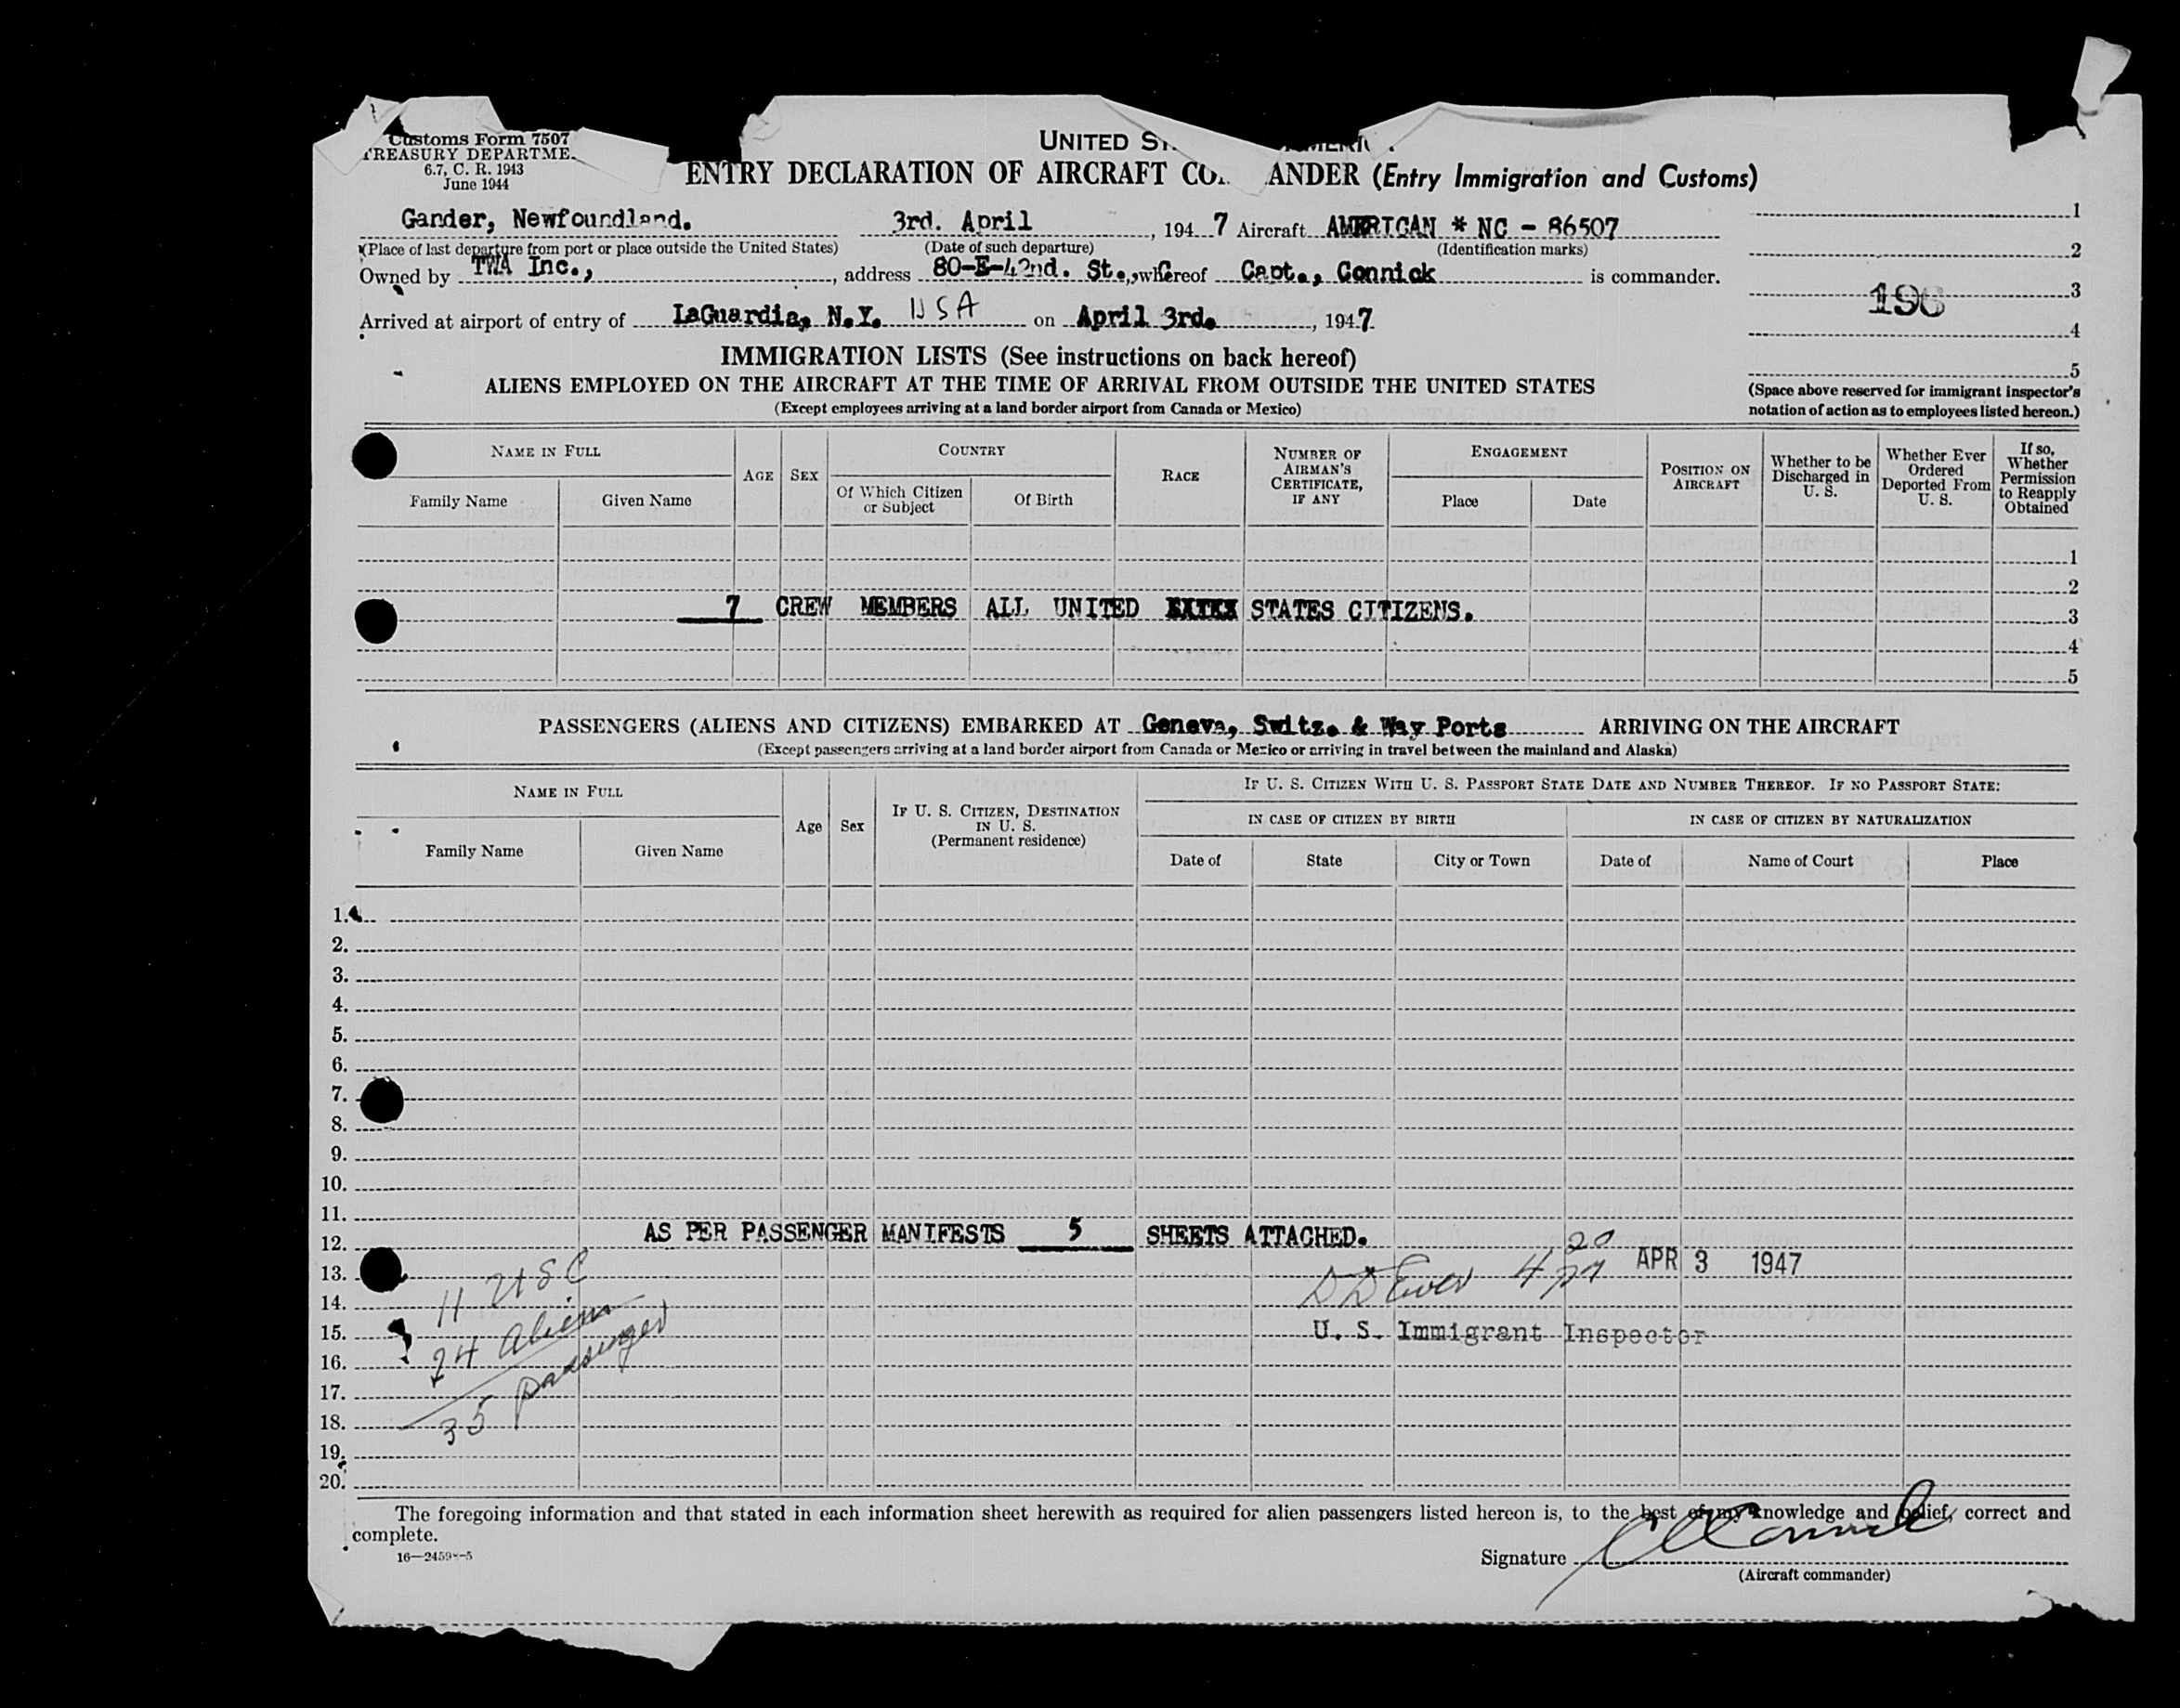 Customs Form 7507
TREASURY DEPARTME
6.7, C. R. 1943
June 1944
UNITED ST
ENTRY DECLARATION OF AIRCRAFT CO ANDER (Entry Immigration and Customs)
Gander, Newfoundland. 3rd. April, 1947 Aircraft AMERICAN * NC - 86507
(Place of last departure from port or place outside the United States) (Date of such departure) (Identification marks)
Owned by TWA Inc., address 80-E-42nd. St., whereof Capt., Connick is commander.
Arrived at airport of entry of LaGuardia, N.Y. USA on April 3rd., 1947
1
2
3
4
5
196
(Space above reserved for immigrant inspector's
notation of action as to employees listed hereon.)
IMMIGRATION LISTS (See instructions on back hereof)
ALIENS EMPLOYED ON THE AIRCRAFT AT THE TIME OF ARRIVAL FROM OUTSIDE THE UNITED STATES
(Except employees arriving at a land border airport from Canada or Mexico)
NAME IN FULL
Family Name Given Name
AGE SEX
COUNTRY
Of Which Citizen or Subject
Of Birth
RACE
NUMBER OF AIRMAN'S CERTIFICATE, IF ANY
ENGAGEMENT
Place Date
POSITION ON AIRCRAFT
Whether to be Discharged in U. S.
Whether Ever Ordered Deported From U. S.
If so, Whether Permission to Reapply Obtained
1
2
7 CREW MEMBERS ALL UNITED STATES CITIZENS. 3
4
5
PASSENGERS (ALIENS AND CITIZENS) EMBARKED AT Geneva, Switz. & Way Ports ARRIVING ON THE AIRCRAFT
(Except passengers arriving at a land border airport from Canada or Mexico or arriving in travel between the mainland and Alaska)
NAME IN FULL
Family Name Given Name
Age Sex
IF U. S. CITIZEN, DESTINATION IN U. S.
(Permanent residence)
IF U. S. CITIZEN WITH U. S. PASSPORT STATE DATE AND NUMBER THEREOF. IF NO PASSPORT STATE:
IN CASE OF CITIZEN BY BIRTH IN CASE OF CITIZEN BY NATURALIZATION
Date of State City or Town Date of Name of Court Place
1.
2.
3.
4.
5.
6.
7.
8.
9.
10.
11.
AS PER PASSENGER MANIFESTS 5 SHEETS ATTACHED.
12.
13. 11 USC 4 20 PM APR 3 1947
14.
15. 24 Aliens U. S. Immigrant Inspector
16.
17. 35 passenger
18.
19.
20.
The foregoing information and that stated in each information sheet herewith as required for alien passengers listed hereon is, to the best of my knowledge and belief, correct and
complete.
Signature
(Aircraft commander)